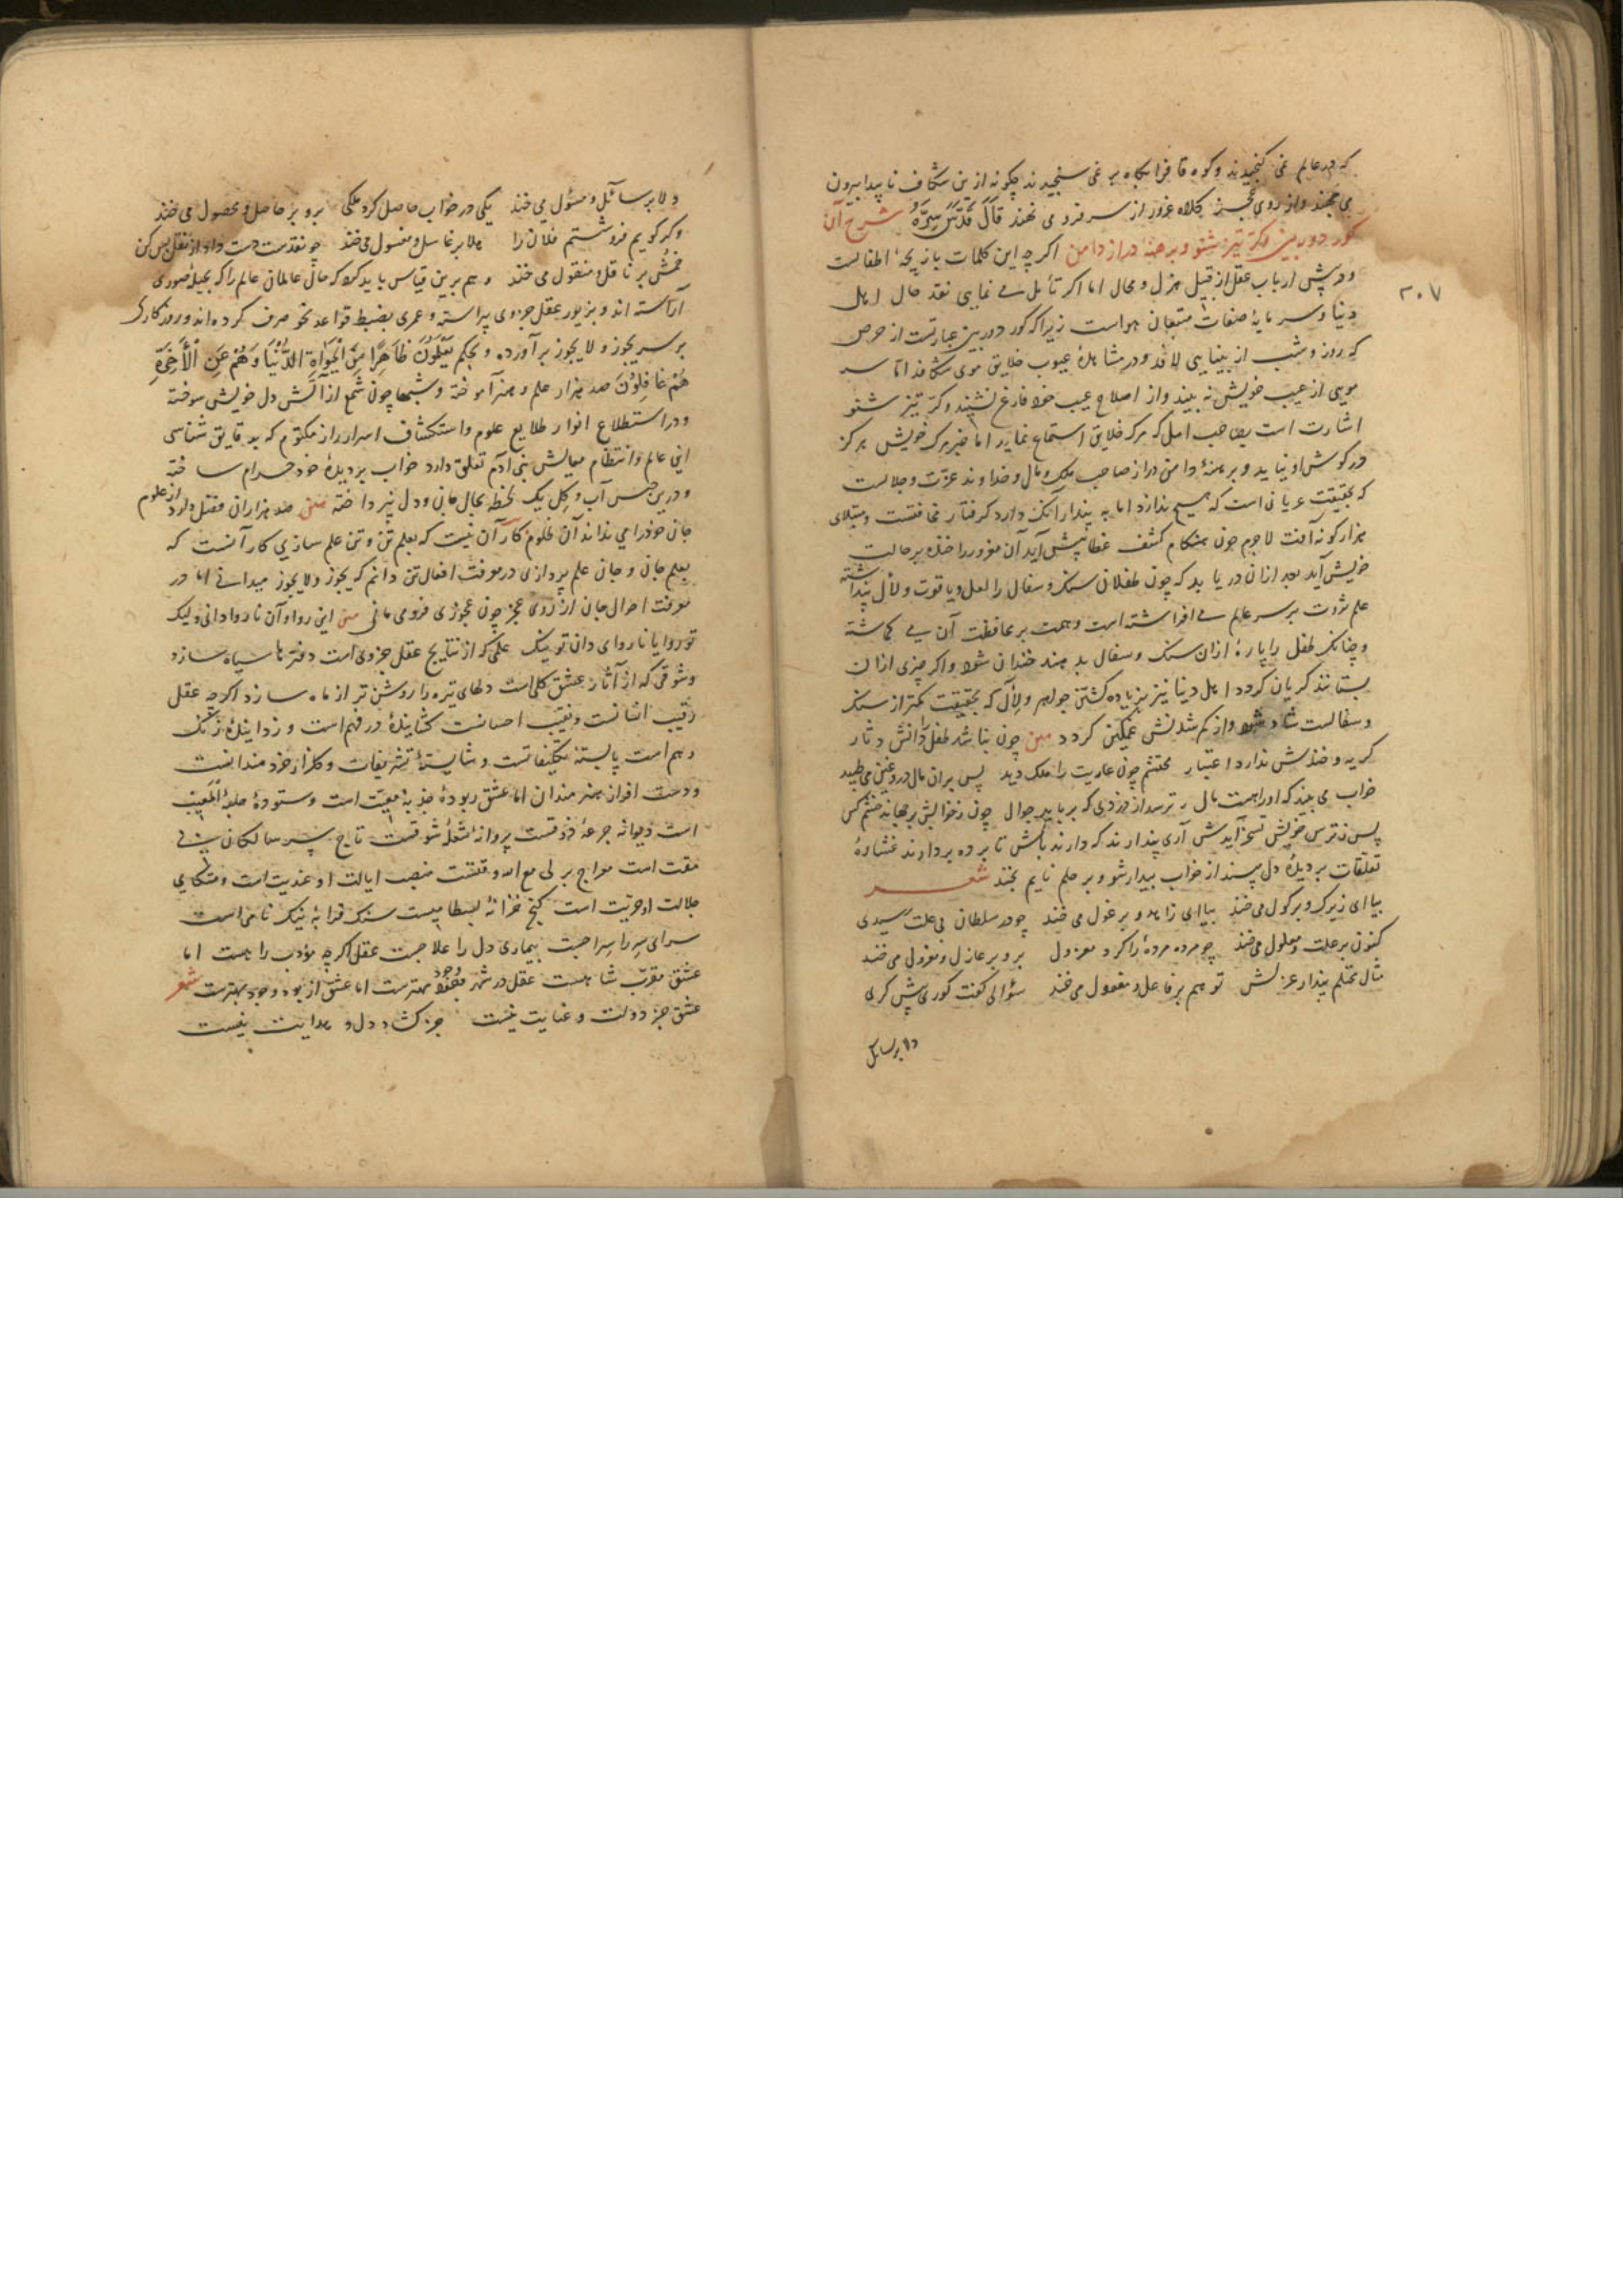 که در عالم نمی کنجیدند و کوه قاف را بکاه بر نمی سنجیدند چکونه ازین شکاف ناپیدا بیرون
می جهند و از روی عجز کلاه غرور از سر فرو می نهند قال قدس سره شرح آن
کور دوربین و کر تیز شنو و برهنه دراز دامن اکرچه این کلمات بازیچهٔ اطفالست
و در پیش ارباب عقل از قبیل هزل و محال اما اکر تأمل می نمایی نقد حال اهل
۲۰۷
دنیا و سرمایهٔ صفات متبعان هواست زیرا که کور دوربین عبارتست از حرص
که روز و شب از بینایی لافد و در مشاهدهٔ عیوب خلایق موی شکافد اما سر
مویی از عیب خویش نه بیند و از اصلاح عیب خود فارغ نشیند و کر تیز شنو
اشارت است بصاحب امل که مرک خلایق استماع نماید اما خبر مرک خویش هرکز
در کوش او نیاید و برهنهٔ دامن دراز صاحب ملک و مال و خداوند عزت و جلالست
که بحقیقت عریانی است که هیچ ندارد اما به پندار آنک دارد کرفتار مخافتست و مبتلای
هزار کونه آفت لاجرم چون هنکام کشف غطا پیش آید آن مغرور را خنده بر حالت
خویش آید بعد ازان دریابد که چون طفلان سنک و سفال را لعل و یاقوت و لآل پنداشته
علم ثروت بر سر عالم می افراشته است و همت بر محافظت آن می کماشته
و چنانک طفل را پارهٔ ازان سنک و سفال بدهند خندان شود و اکر چیزی ازان
بستانند کریان کردد اهل دنیا نیز بزیاده کشتن جواهر و لآل که بحقیقت کمتر از سنک
و سفالست شاد شود و از کم شدنش غمکین کردد متن چون نباشد طفل را دانش دثار
کریه و خندش ندارد اعتبار محتشم چون عاریت را ملک دید پس بران مال دروغین می طپید
خواب می بیند که او را هست مال ترسد از دزدی که برباید جوال چون ز خوابش برجهاند خشم کس
پس ز ترس خویش تسخر آیدش آری پندارند که دارند باش تا پرده بردارند غشاوهٔ
تعلقات بر دیدهٔ دل مپسند از خواب بیدار شو و بر حلم نایم بخند شعر
بیا ای زیرک و بر کول می خند بیا ای زاهد و بر غول می خند چو در سلطان بی علت رسیدی
کنون بر علت و معلول می خند چو مرده مردهٔ را کرد معزول برو بر عازل و معزول می خند
مثال محتلم پندار عزلش تو هم بر فاعل و مفعول می خند سؤالی کفت کوری پیش کری
ولا بر سایل
ولا بر سائل و مسئول می خند یکی در خواب حاصل کرد ملکی برو بر حاصل و محصول می خند
و کر کویم فروشستم فلان را هلا بر غاسل و مغسول می خند چو نقدست دست داد از نقل بس کن
خمش بر ناقل و منقول می خند و هم برین قیاس باید کرد که حال عالمان عالم را که بحیلهٔ صوری
آراسته اند و بزیور عقل جزوی پیراسته و عمری بضبط قواعد نحو صرف کرده اند و روزکاری
بر سر یجوز و لا یجوز برآورده و بحکم یعلمون ظاهرا من الحیوة الدنیا و هم عن الآخرة
هم غافلون صد هزار علم و هنر آموخته و شبها چون شمع از آتش دل خویش سوخته
و در استطلاع انوار طلایع علوم و استکشاف اسرار راز مکتوم که بدقایق شناسی
این عالم و انتظام معایش بنی آدم تعلق دارد خواب بر دیدهٔ خود حرام ساخته
و درین حبس آب و کل یک لحظه بحال جان و دل نپرداخته متن صد هزاران فضل دارد از علوم
جان خود را می نداند آن ظلوم کار آن نیست که بعلم تن و تن علم سازی کار آنست که
بعلم جان و جان علم پردازی در معرفت افعال تن دانم که یجوز و لا یجوز میدانی اما در
معرفت احوال جان از روی عجز چون عجوزی فرو می مانی متن این روا و آن ناروا دانی ولیک
تو روا یا ناروای دان تو نیک علمی که از نتایج عقل جزوی است دفترها سیاه سازد
و شوقی که از آثار عشق کلی است دلهای تیره را روشن تر از ماه سازد اکرچه عقل
رقیب انسانست و نقیب احسانست کشایندهٔ در فهم است و زدایندهٔ زنک
وهم است پابستهٔ تکلیفاتست و شایستهٔ تشریفات و کلزار خردمندانست
و دست افزار هنرمندان اما عشق ربودهٔ جذبهٔ معیت است و ستودهٔ جلبهٔ
است دیوانهٔ جرعهٔ ذوقست پروانهٔ شعلهٔ شوقست تاج سر سالکان
مقت است معراج بر لی مع الله وقتست منصب ایالت او عندیت است و متکای
جلالت او حریت است کنج خزانهٔ لبسطا میست سنک قرابهٔ نیک نامی است
سرای سر را سراجست بیماری دل را علاجست عقل اکرچه مؤدب راهست اما
عشق مقرب شاهست عقل در شهر وجود مهترست اما عشق از بود و وجود بهترست شعر
عشق جز دولت و عنایت نیست جز کشاد دل و هدایت نیست